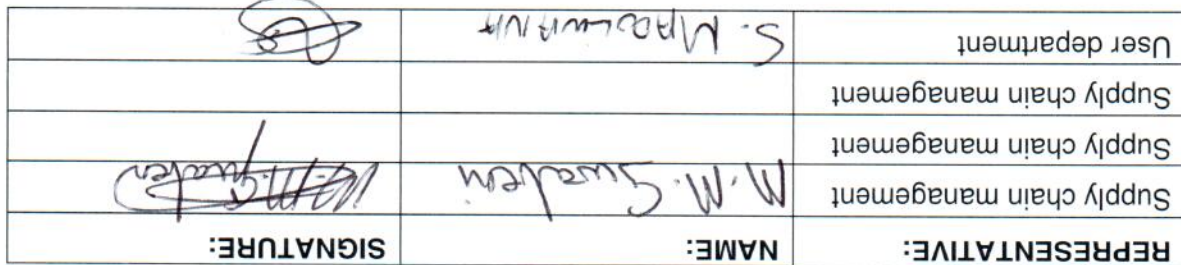 REPRESENTATIVE: NAME: SIGNATURE:
Supply chain management M.M.
Supply chain management
Supply chain management
User department S.